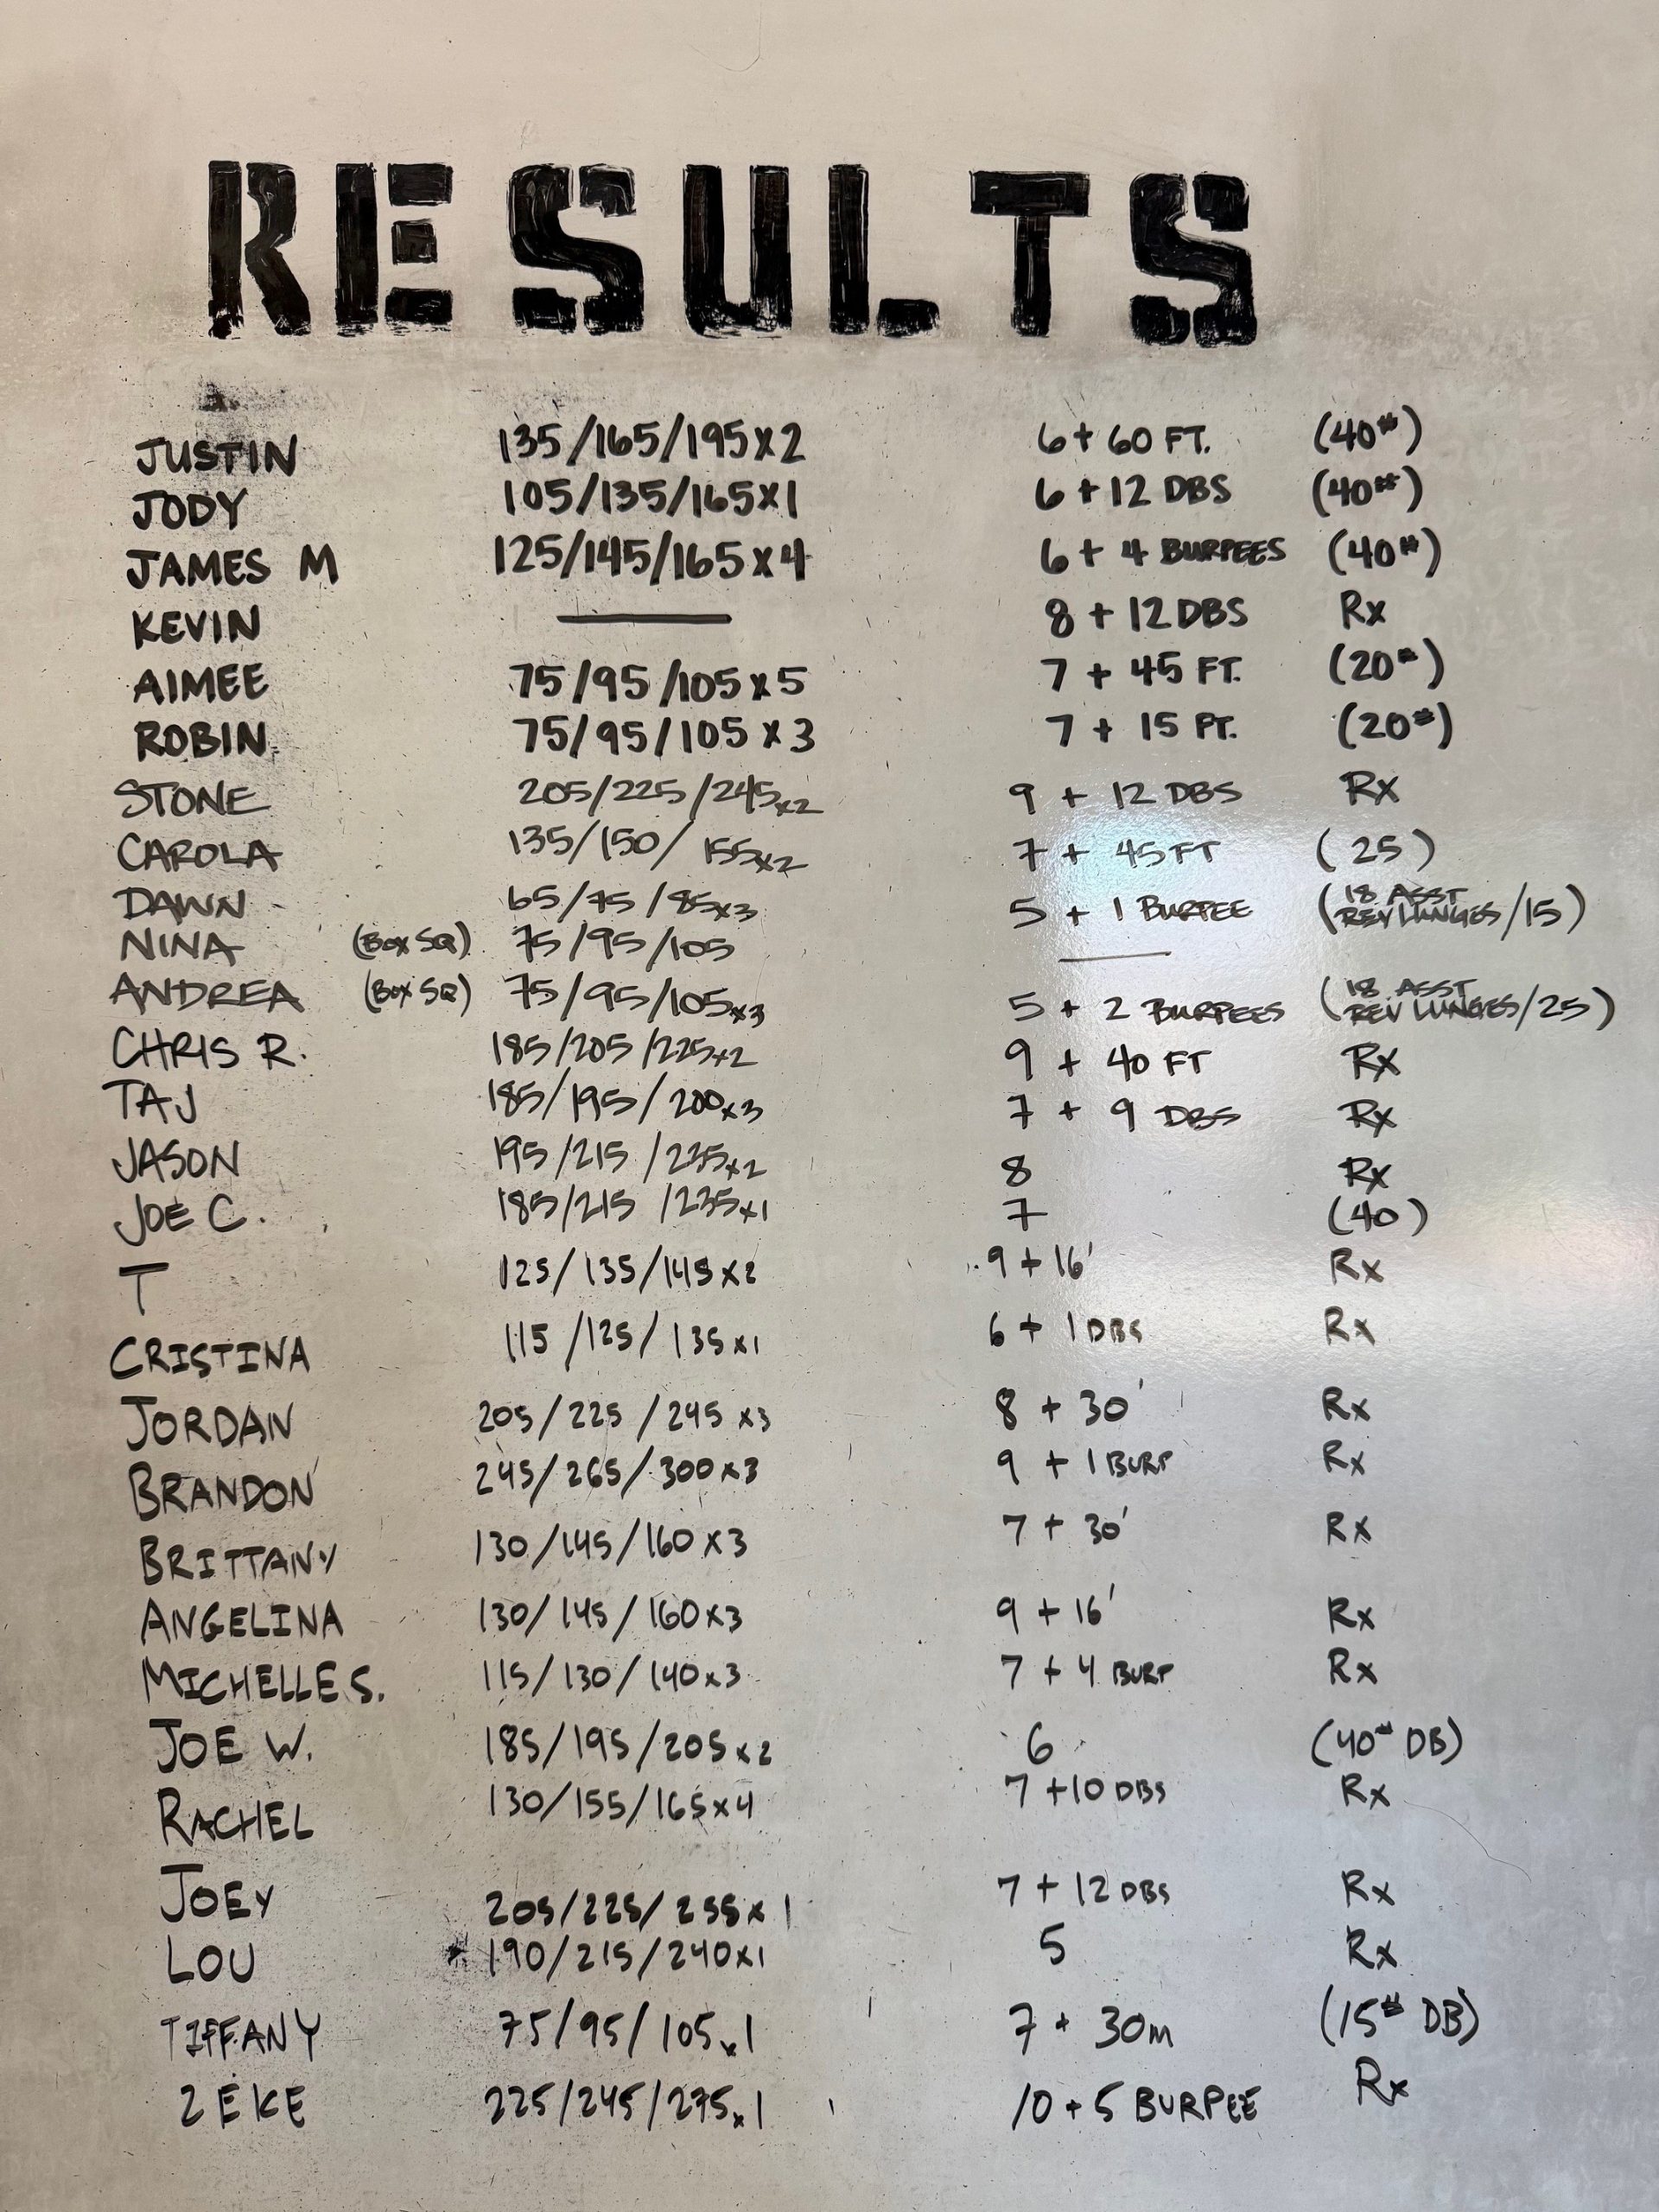 RESULTS
JUSTIN 135/165/195x2 6 + 60 FT. (40#)
JODY 105/135/165x1 6 + 12 DBS (40#)
JAMES M 125/145/165x4 6 + 4 BURPEES (40#)
KEVIN — 8 + 12 DBS Rx
AIMEE 75/95/105x5 7 + 45 FT. (20#)
ROBIN 75/95/105x3 7 + 15 FT. (20#)
STONE 205/225/245x2 9 + 12 DBS Rx
CAROLA 135/150/155x2 7 + 45 FT (25)
DAWN 65/75/85x3 5 + 1 BURPEE (18 ASST REV LUNGES/15)
NINA (BOX SQ) 75/95/105 —
ANDREA (BOX SQ) 75/95/105x3 5 + 2 BURPEES (18 ASST REV LUNGES/25)
CHRIS R. 185/205/225x2 9 + 40 FT Rx
TAJ 185/195/200x3 7 + 9 DBS Rx
JASON 195/215/235x2 8 Rx
JOE C. 185/215/235x1 7 (40)
T 125/135/145x2 9 + 16' Rx
CRISTINA 115/125/135x1 6 + 1 DBS Rx
JORDAN 205/225/245x3 8 + 30' Rx
BRANDON 245/265/300x3 9 + 1 BURP Rx
BRITTANY 130/145/160x3 7 + 30' Rx
ANGELINA 130/145/160x3 9 + 16' Rx
MICHELLE S. 115/130/140x3 7 + 4 BURP Rx
JOE W. 185/195/205x2 6 (40# DB)
RACHEL 130/155/165x4 7 + 10 DBS Rx
JOEY 205/225/255x1 7 + 12 DBS Rx
LOU * 190/215/240x1 5 Rx
TIFFANY 75/95/105x1 7 + 30m (15# DB)
ZEKE 225/245/275x1 10 + 5 BURPEE Rx